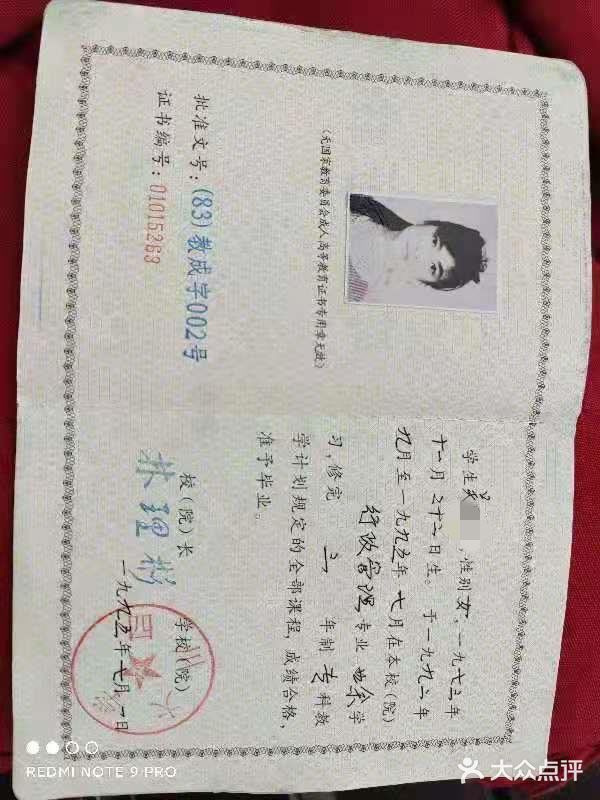 (无国家教育委员会成人高等教育证书专用章无效)
批准文号:(83)教成字002号
证书编号:01015263
学生吴
,性别女,一九七三年
十一月二十二日生。于一九九二年
九月至一九九五年七月在本校(院)
行政管理专业 业余学
习,修完 三 年制 专科教
学计划规定的全部课程,成绩合格,
准予毕业。
校(院)长
林理彬
学校(院)
一九九五年七月一日
REDMI NOTE 9 PRO
大众点评